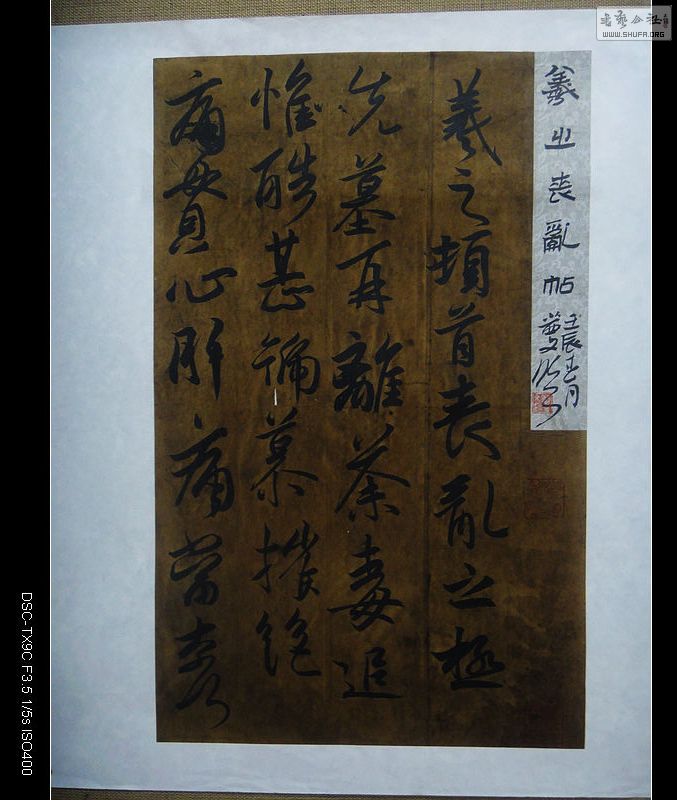 書藝公社
WWW.SHUFA.ORG
羲之喪亂帖
壬辰 月
羲之頓首喪亂之極
先墓再離荼毒追
惟酷甚號慕摧絕
痛貫心肝痛當奈何
DSC-TX9C F3.5 1/5s ISO400